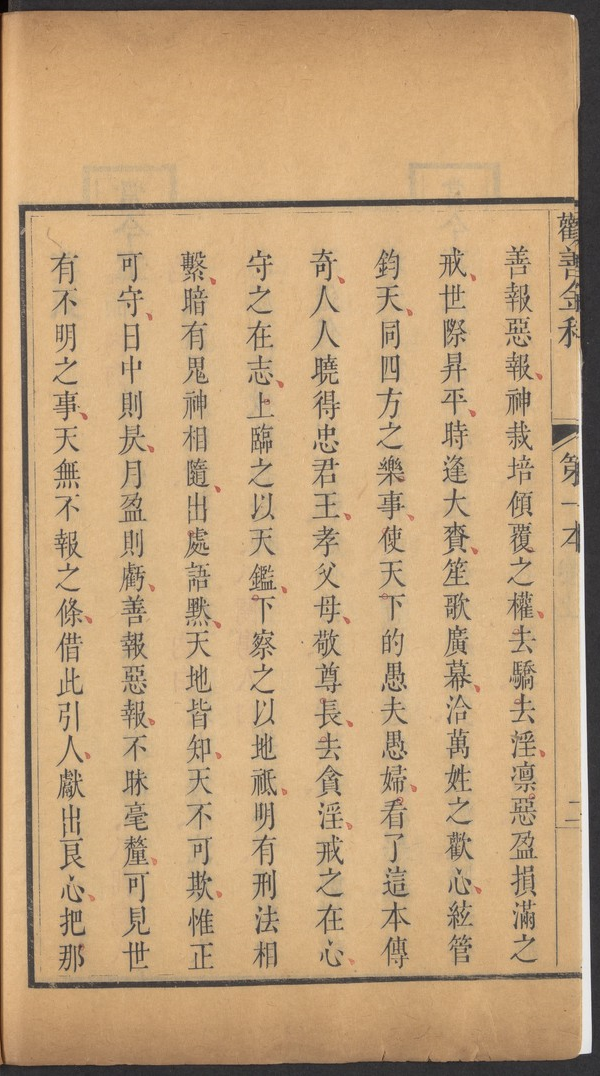 勸善金科
第一本
二
善報惡報神栽培傾覆之權去驕去淫凛惡盈損滿之
戒世際昇平時逢大賚笙歌廣幕洽萬姓之歡心絃管
鈞天同四方之樂事使天下的愚夫愚婦看了這本傳
奇人人曉得忠君王孝父母敬尊長去貪淫戒之在心
守之在志上臨之以天鑑下察之以地祗明有刑法相
繫暗有鬼神相隨出處語默天地皆知天不可欺惟正
可守日中則昃月盈則虧善報惡報不昧毫釐可見世
有不明之事天無不報之條借此引人獻出良心把那